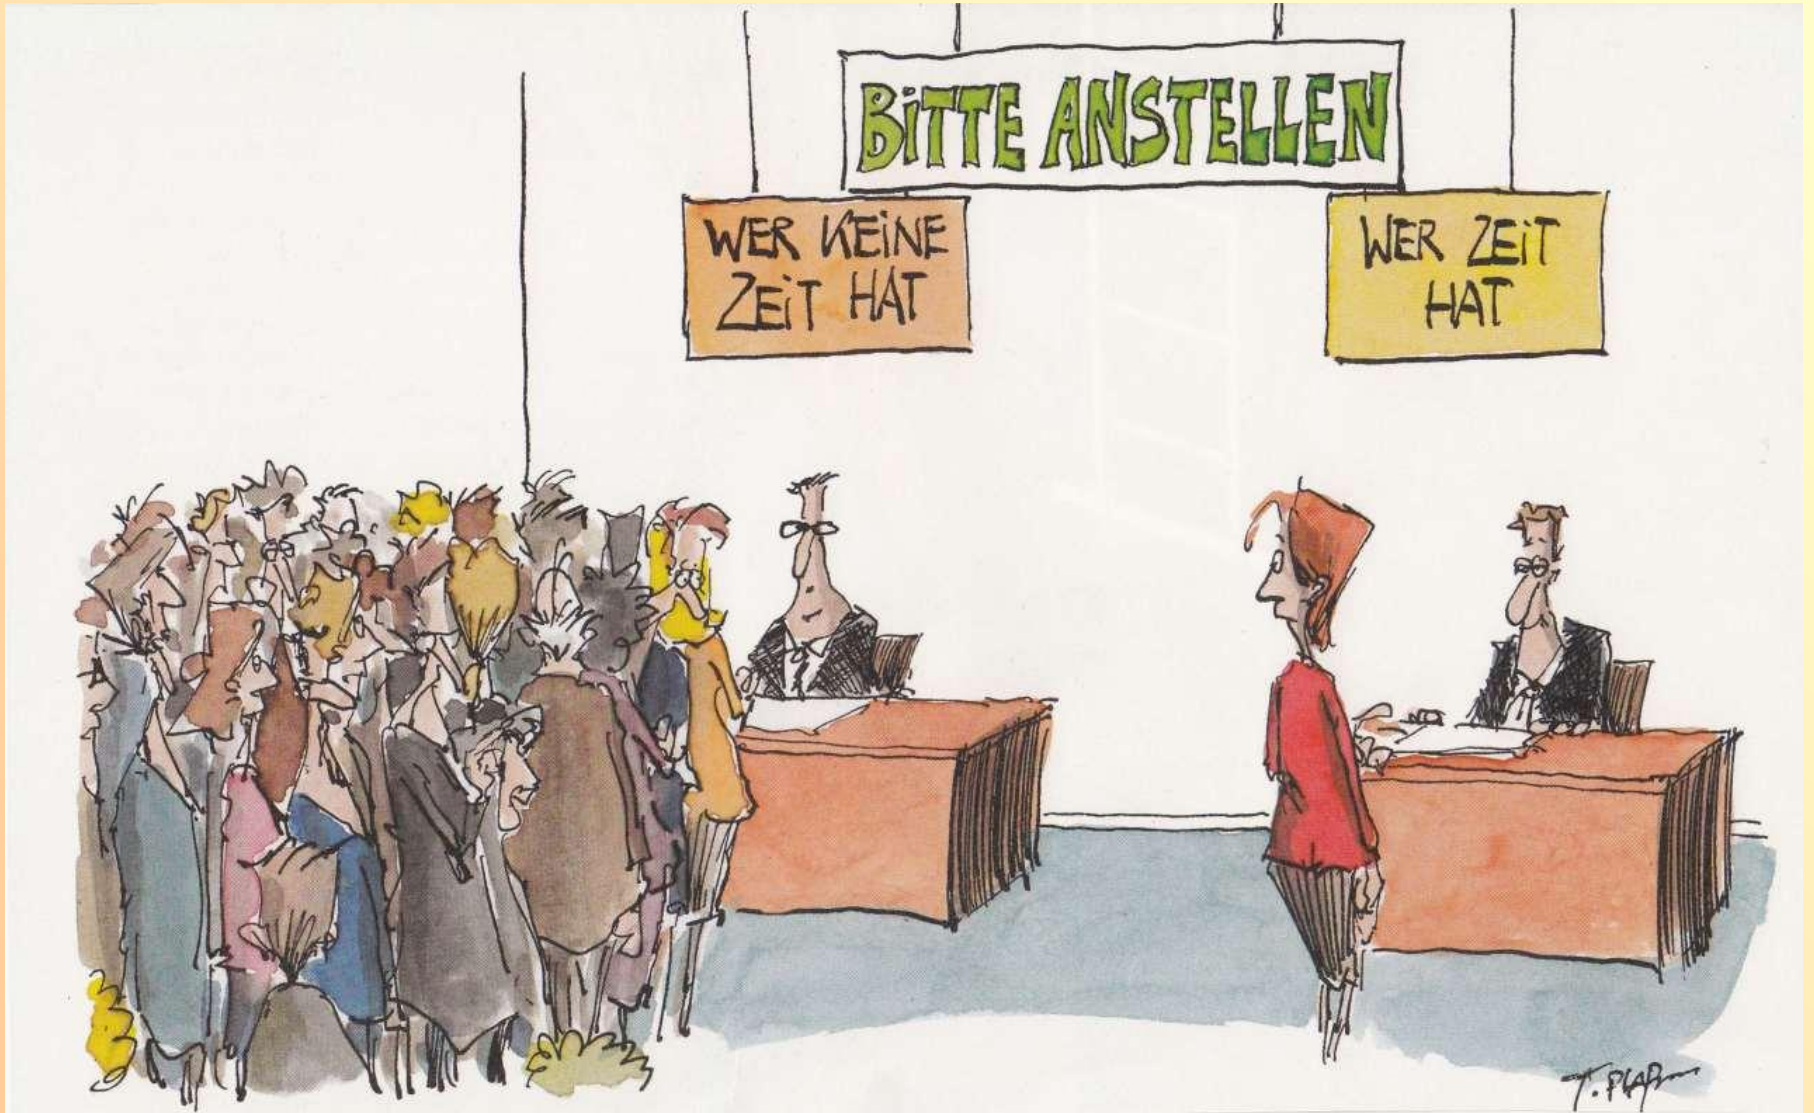 BiTTE ANSTELLEN
WER KEiNE
ZEiT HAT
WER ZEiT
HAT